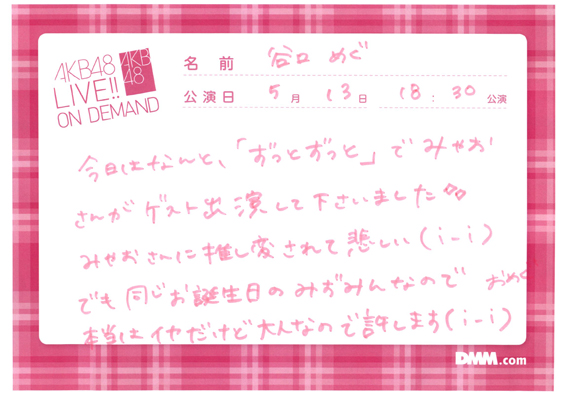 AKB48
LIVE!!
ON DEMAND
AKB
48
名前 谷口 めぐ
公演日 5月 13日 18:30 公演
今日はなんと、「ずっとずっと」でみゃお
さんがゲスト出演して下さいました◇◇
みゃおさんに推し変されて悲しい(i-i)
でも同じお誕生日のみずみんなので おめぐ
本当はイヤだけど大人なので許します(i-i)
DMM.com